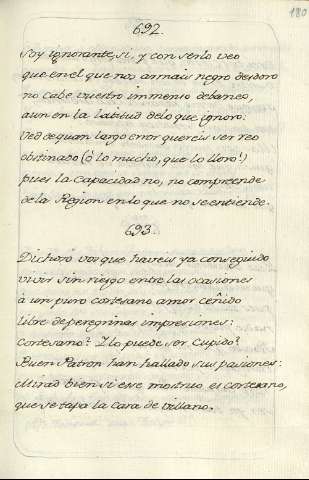 180
692.
Soy ignorante, si, y con serlo veo
que en el que nos armais negro desdoro
no cabe vuestro immenso debaneo,
aun en la latitud de lo que ignoro.
Ved de quan largo error quereis ser reo
obstinado (ò lo mucho, que lo lloro!)
pues la Capacidad no, no comprende
de la Region en lo que no se entiende.
693.
Dichoso vos que haveis ya conseguido
vivir sin riesgo entre las ocasiones
à un puro cortesano amor ceñido
libre de peregrinas impresiones:
Cortesano? I lo puede ser Cupido?
Buen Patron han hallado sus pasiones:
Mirad bien si ese mostruo es cortesano,
que se tapa la cara de villano.